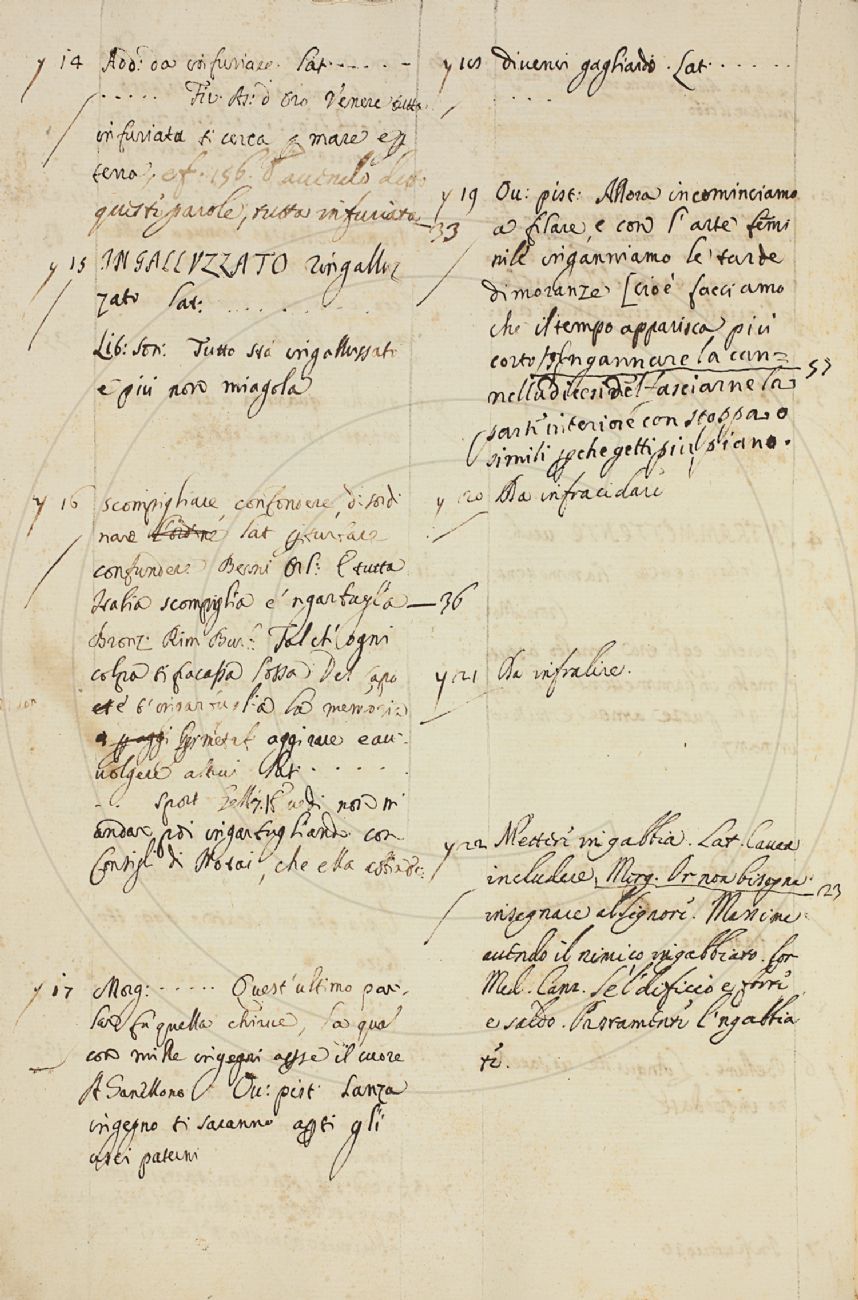 y 14 Add: da infuriare. Lat. . . . . .
. . . . . Fir. As: d'Oro Venere tutta
infuriata ti cerca p mare e p
terra, e f. 156. Avendo
queste parole, tutta infuriata
y 15 INGALLVZZATO Ringalluz
zato Lat: . . . . . . . .
Lib: Son: Tutto sta ingalluzzato
e più non miagola
y 16 scompigliare, confondere, disordi
nare Lat
confundere Berni Orl: E tutta
Italia scompiglia e 'ngarbuglia — 36
Bronz: Rim Bur: Tal ch'ogni
cosa si
la memoria
aggirare e av-
volgere altrui Lat . . . . .
. . Sport Gell: vedi non m'
andare poi ingarbugliando con
Consigli di Notai, che ella
y 17 Morg: . . . . . Quest'ultimo par-
lar fu quella chiave, la qual
con mille ingegni aperse il cuore
Ou: pist Sanza
ingegno ti saranno apti gli
usci paterni
y 18 divenir gagliardo. Lat. . . . . . .
. . . .
y 19 Ou: pist: Allora incominciamo
33 a filare, e con l'arte femi
nile inganniamo le tarde
dimoranze [cioè facciamo
che il tempo apparisca più
corto. Ingannare la can-
nella dicesi del fasciarne la 57
parte interiore con stoppa o
simili pche getti più piano.
y 20 Da infracidare
y 21 Da infralire.
y 22 Mettere in gabbia. Lat. Cavea
includere, Morg. Or non bisogna 23
insegnare al signore. Massime
avendo il nimico ingabbiato. Lor
Med. Canz. Se l'dificio è forte
e saldo. Prestamente l'ngabbia
te.